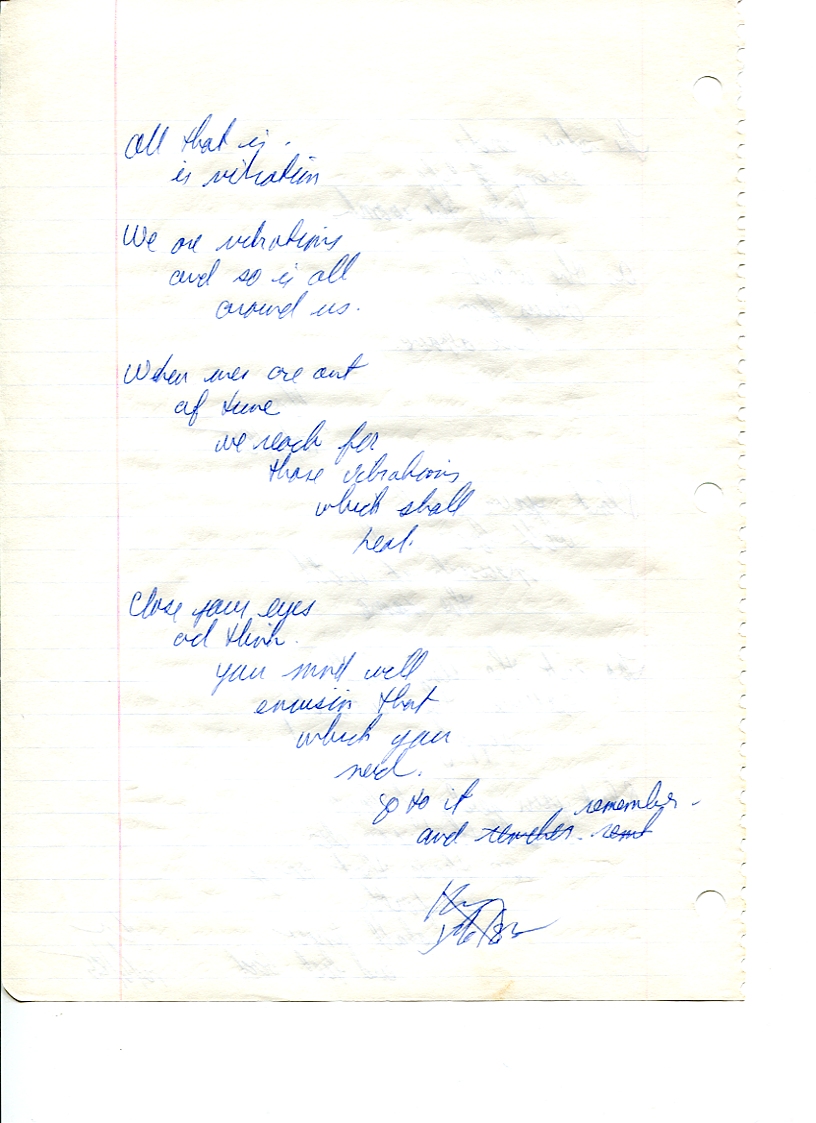 All that is.
is vibration
We are vibrations
and so is all
around us.
When we are out
of tune
we reach for
those vibrations
which shall
heal.
Close your eyes
ad think.
your mind will
envision that
which you
need.
go to it
remember.
and